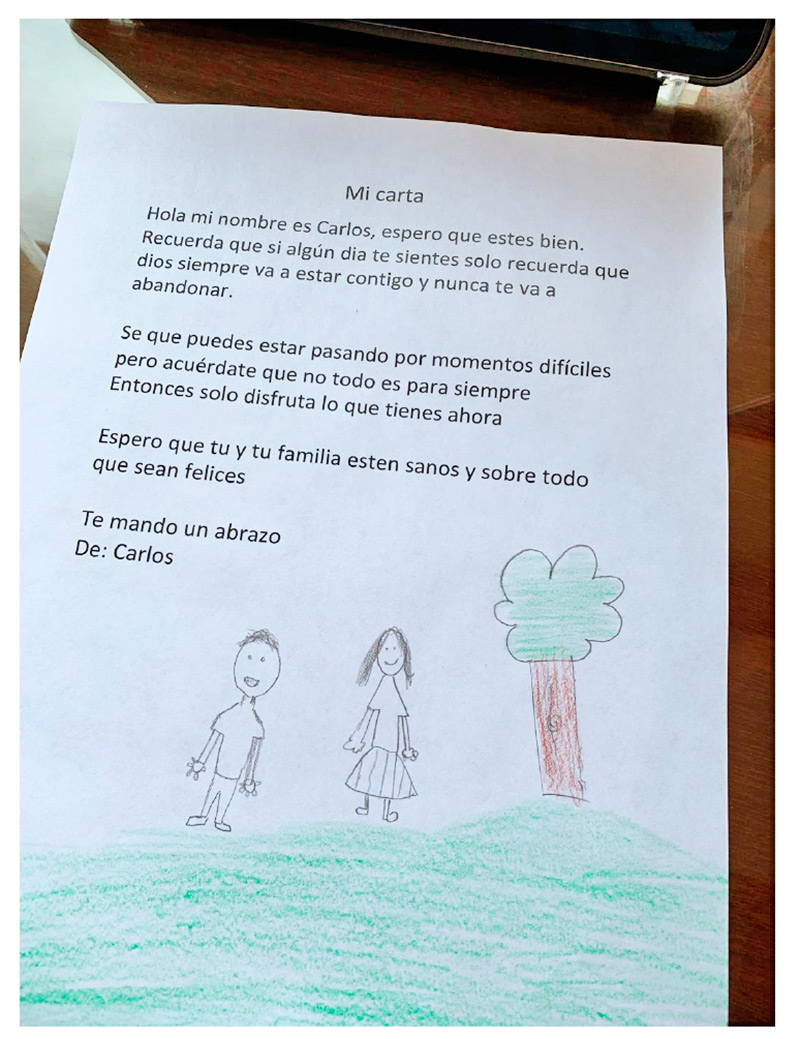 Mi carta
Hola mi nombre es Carlos, espero que estes bien.
Recuerda que si algún dia te sientes solo recuerda que
dios siempre va a estar contigo y nunca te va a
abandonar.
Se que puedes estar pasando por momentos difíciles
pero acuérdate que no todo es para siempre
Entonces solo disfruta lo que tienes ahora
Espero que tu y tu familia esten sanos y sobre todo
que sean felices
Te mando un abrazo
De: Carlos